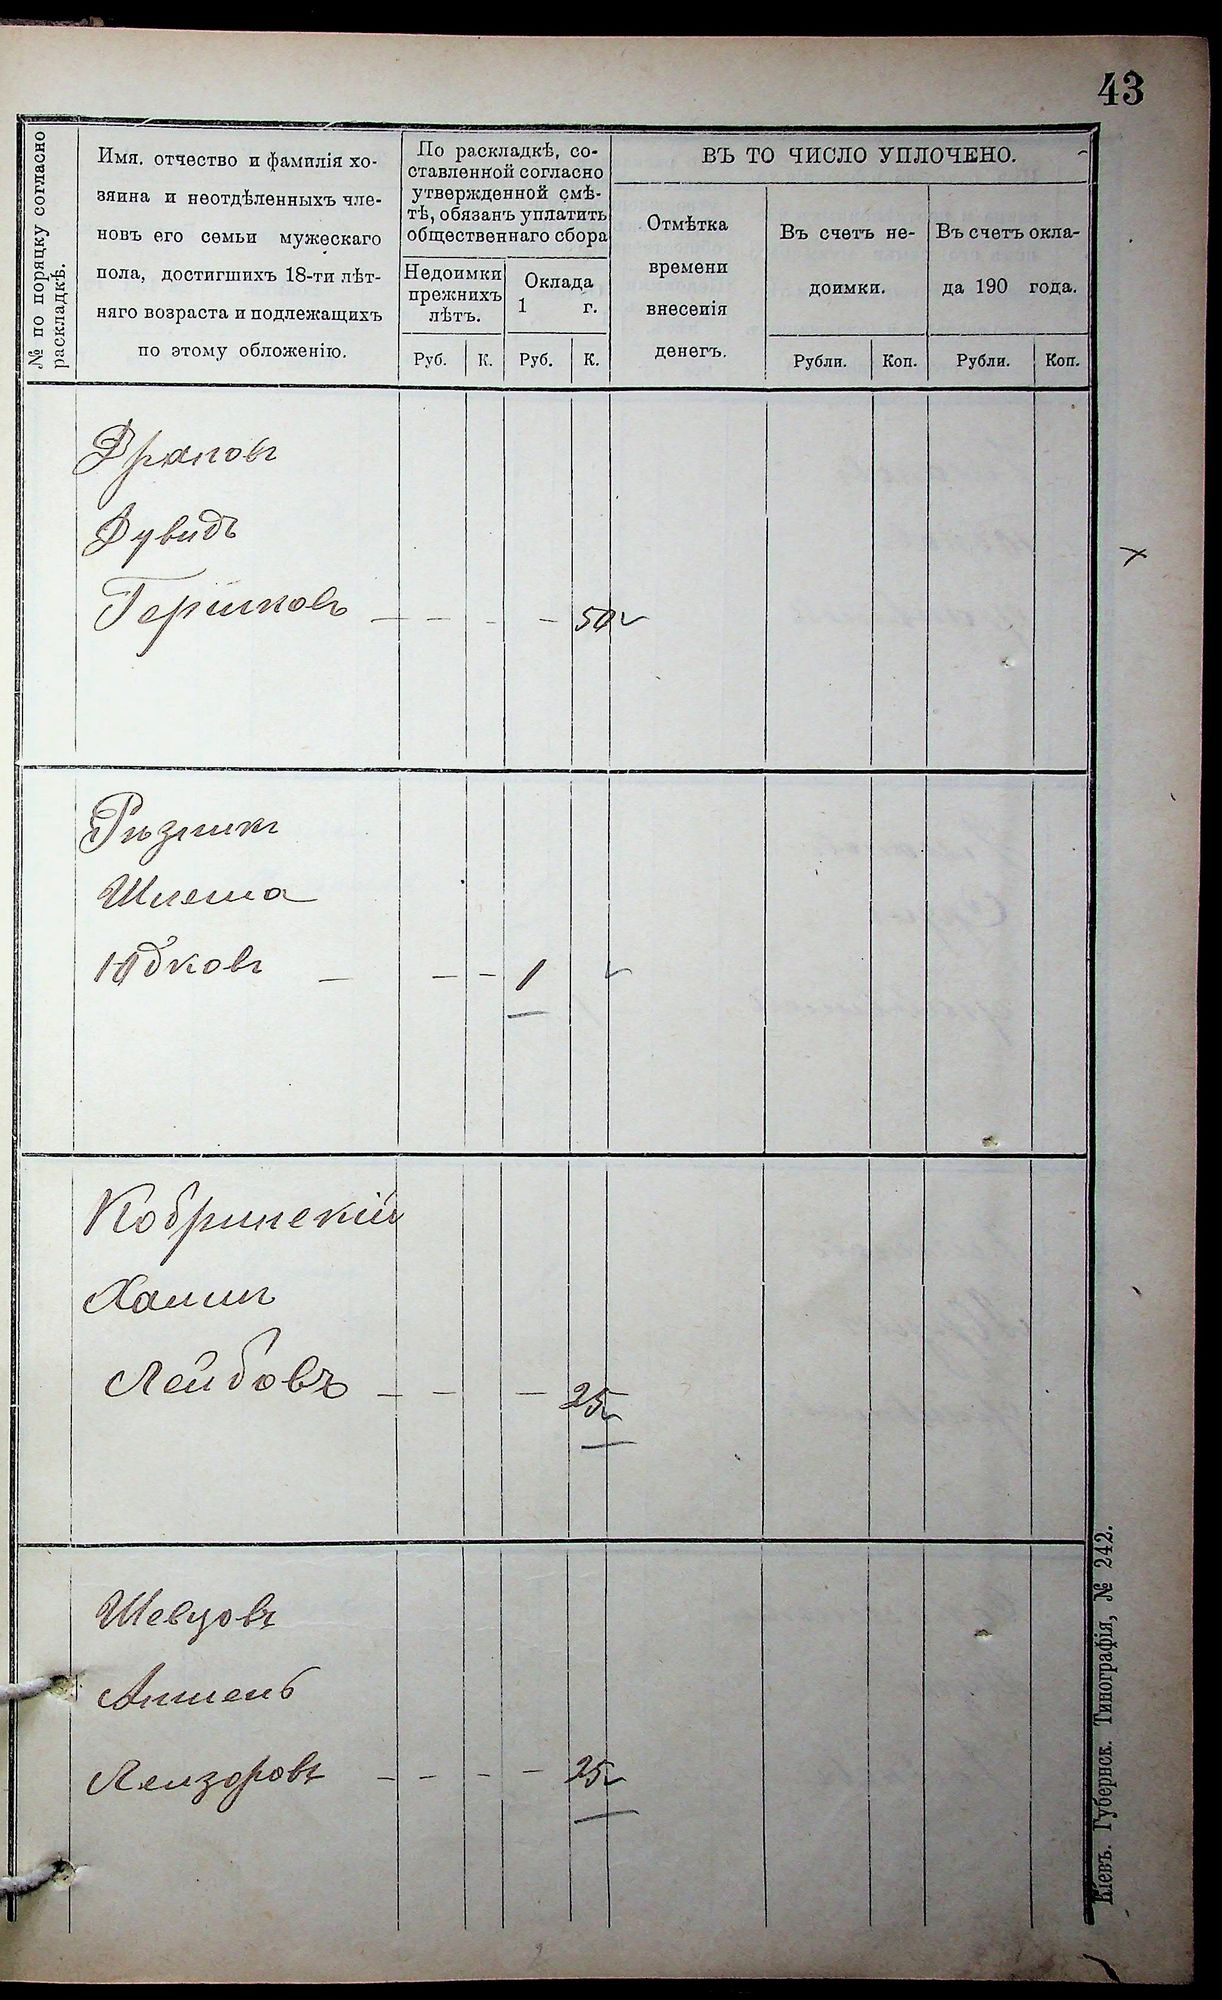 43
№ по порядку согласно
раскладкѣ.
Имя, отчество и фамилія хо-
зяина и неотдѣленныхъ чле-
новъ его семьи мужескаго
пола, достигшихъ 18-ти лѣт-
няго возраста и подлежащихъ
по этому обложенію.
По раскладкѣ, со-
ставленной согласно
утвержденной смѣ-
тѣ, обязанъ уплатить
общественнаго сбора
Недоимки
прежнихъ
лѣтъ.
Оклада
1 г.
Руб. К. Руб. К.
ВЪ ТО ЧИСЛО УПЛОЧЕНО.
Отмѣтка
времени
внесенія
денегъ.
Въ счетъ не-
доимки.
Въ счетъ окла-
да 190 года.
Рубли. Коп. Рубли. Коп.
Дувидъ
Гершковъ - - - - 50
Рѣзникъ
Шлема
Юдковъ - - - 1
Кобринскій
Хаимъ
Лейбовъ - - - 25
Шевцовъ
Аншель
Лейзоровъ - - - - 25
Кіевъ. Губернск. Типографія, № 242.